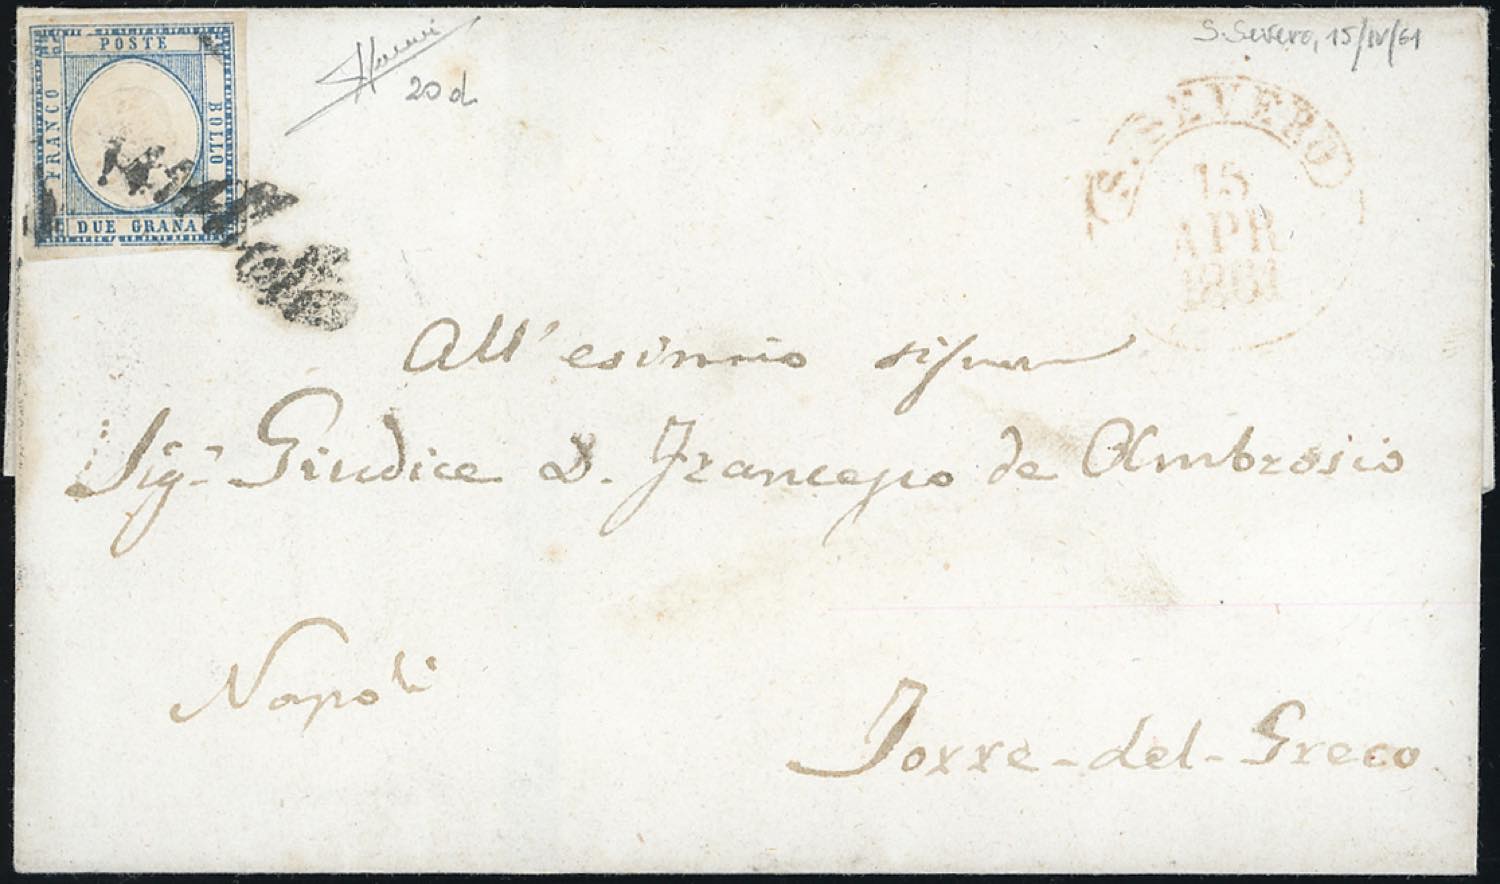 POSTE
FRANCO
BOLLO
DUE GRANA
20 d.
S. Severo, 15/IV/61
S. SEVERO
15
APR
1861
All' esimio
Sig.r Giudice D. Francesco de Ambrosio
Napoli
Torre-del-Greco